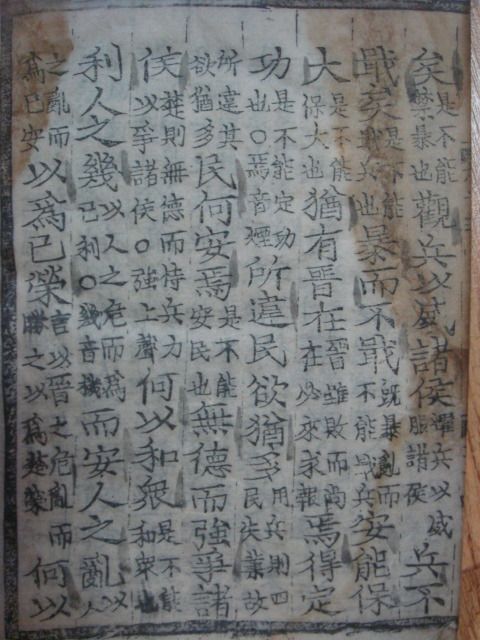 矣是不能禁暴也觀兵以威諸侯耀兵以威服諸侯兵不
戢矣是不能戢兵也暴而不戢旣暴亂而不能戢兵安能保
大是不能保大也猶有晉在晉雖敗而尚在必來求報焉得定
功是不能定功也○焉音煙所違民欲猶多用兵則四民失業故
所違其欲猶多民何安焉是不能安民也無德而強爭諸
侯楚則無德而恃兵力以爭諸侯○強上聲何以和衆是不能和衆也
利人之幾以人之危而爲己利○幾音機而安人之亂以人
之亂而爲己安以爲己榮言以晉之危亂而勝之以爲楚榮何以